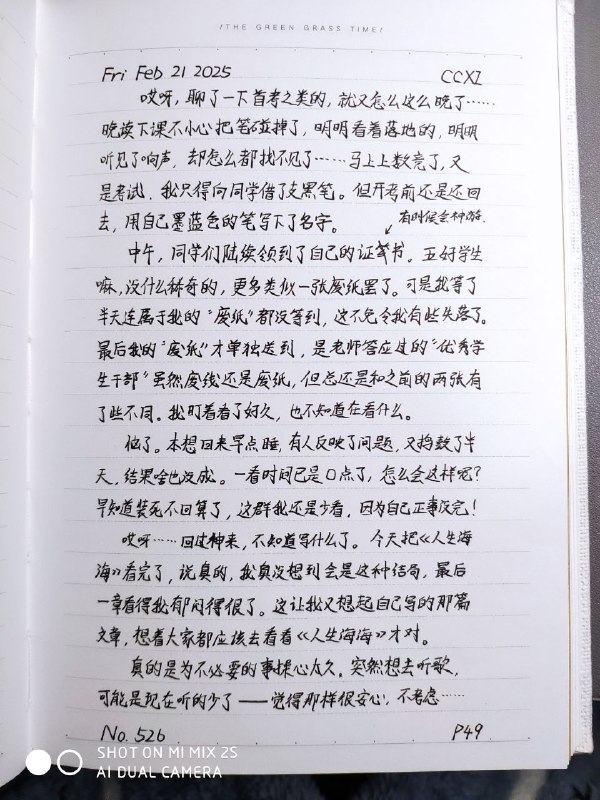 /THE GREEN GRASS TIME/
Fri Feb 21 2025 CCXI
哎呀，聊了一下首考之类的，就又怎么这么晚了……
晚读下课不小心把笔碰掉了，明明看着落地的，明明
听见了响声，却怎么都找不见了……马上上数竞了，又
是考试，我只得向同学借了支黑笔。但开考前还是还回
去，用自己墨蓝色的笔写下了名字。
有时候会神游.
中午，同学们陆续领到了自己的证书。五好学生
嘛，没什么稀奇的，更多类似一张废纸罢了。可是我等了
半天连属于我的“废纸”都没等到，这不免令我有些失落了。
最后我的“废纸”才单独送到，是老师答应过的“优秀学
生干部”虽然废纸还是废纸，但总还是和之前的两张有
了些不同。我盯着看了好久，也不知道在看什么。
恼了。本想回来早点睡，有人反映了问题，又捣鼓了半
天，结果啥也没成。一看时间已是0点了，怎么会这样呢？
早知道装死不回算了，这群我还是少看，因为自己正事没完！
哎呀……回过神来，不知道写什么了。今天把《人生海
海》看完了，说真的，我真没想到会是这种结局，最后
一章看得我郁闷得很了。这让我又想起自己写的那篇
文章，想着大家都应该去看看《人生海海》才对。
真的是为不必要的事操心太久。突然想去听歌，
可能是现在听的少了——觉得那样很安心，不考虑……
No. 526 P49
SHOT ON MI MIX 2S
AI DUAL CAMERA